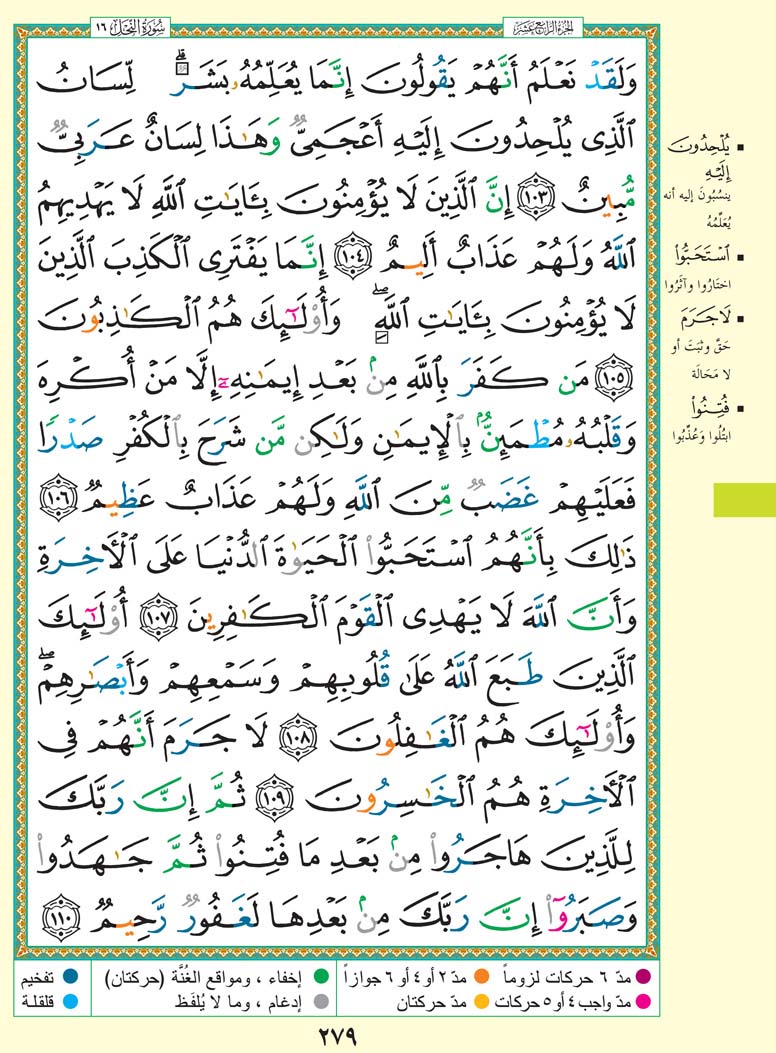 الجزء الرابع عشر
سُورَةُ النَّحْلِ ١٦
وَلَقَدْ نَعْلَمُ أَنَّهُمْ يَقُولُونَ إِنَّمَا يُعَلِّمُهُۥ بَشَرٌ ۗ لِّسَانُ
ٱلَّذِى يُلْحِدُونَ إِلَيْهِ أَعْجَمِىٌّ وَهَٰذَا لِسَانٌ عَرَبِىٌّ
مُّبِينٌ ١٠٣ إِنَّ ٱلَّذِينَ لَا يُؤْمِنُونَ بِـَٔايَٰتِ ٱللَّهِ لَا يَهْدِيهِمُ
ٱللَّهُ وَلَهُمْ عَذَابٌ أَلِيمٌ ١٠٤ إِنَّمَا يَفْتَرِى ٱلْكَذِبَ ٱلَّذِينَ
لَا يُؤْمِنُونَ بِـَٔايَٰتِ ٱللَّهِ ۖ وَأُو۟لَٰٓئِكَ هُمُ ٱلْكَٰذِبُونَ
١٠٥ مَن كَفَرَ بِٱللَّهِ مِنۢ بَعْدِ إِيمَٰنِهِۦٓ إِلَّا مَنْ أُكْرِهَ
وَقَلْبُهُۥ مُطْمَئِنٌّۢ بِٱلْإِيمَٰنِ وَلَٰكِن مَّن شَرَحَ بِٱلْكُفْرِ صَدْرًا
فَعَلَيْهِمْ غَضَبٌ مِّنَ ٱللَّهِ وَلَهُمْ عَذَابٌ عَظِيمٌ ١٠٦
ذَٰلِكَ بِأَنَّهُمُ ٱسْتَحَبُّوا۟ ٱلْحَيَوٰةَ ٱلدُّنْيَا عَلَى ٱلْـَٔاخِرَةِ
وَأَنَّ ٱللَّهَ لَا يَهْدِى ٱلْقَوْمَ ٱلْكَٰفِرِينَ ١٠٧ أُو۟لَٰٓئِكَ
ٱلَّذِينَ طَبَعَ ٱللَّهُ عَلَىٰ قُلُوبِهِمْ وَسَمْعِهِمْ وَأَبْصَٰرِهِمْ ۖ
وَأُو۟لَٰٓئِكَ هُمُ ٱلْغَٰفِلُونَ ١٠٨ لَا جَرَمَ أَنَّهُمْ فِى
ٱلْـَٔاخِرَةِ هُمُ ٱلْخَٰسِرُونَ ١٠٩ ثُمَّ إِنَّ رَبَّكَ
لِلَّذِينَ هَاجَرُوا۟ مِنۢ بَعْدِ مَا فُتِنُوا۟ ثُمَّ جَٰهَدُوا۟
وَصَبَرُوٓا۟ إِنَّ رَبَّكَ مِنۢ بَعْدِهَا لَغَفُورٌ رَّحِيمٌ ١١٠
▪ يُلْحِدُونَ
إِلَيْهِ
ينسُبُونَ إليه أنه
يُعَلِّمُهُ
▪ ٱسْتَحَبُّوا۟
اختَارُوا وآثَرُوا
▪ لَا جَرَمَ
حَقَّ وثَبَتَ أو
لا مَحَالَة
▪ فُتِنُوا۟
ابتُلوا وَعُذِّبُوا
مدّ ٦ حركات لزوماً ● مدّ ٢ أو ٤ أو ٦ جوازاً ● إخفاء ، ومواقع الغُنَّة (حركتان) ● تفخيم
مدّ واجب ٤ أو ٥ حركات ● مدّ حركتان ● إدغام ، وما لا يُلفَظ ● قلقلة
٢٧٩